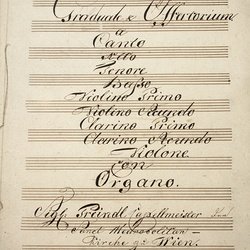 Graduale & Offertorium
a
Canto
Alto
Tenore
Basso
Violino Primo
Violino Secundo
Clarino Primo
Clarino Secundo
Violone
con
Organo.
Preindl Capellmeister
Metropolitan-
Kirche zu Wien.